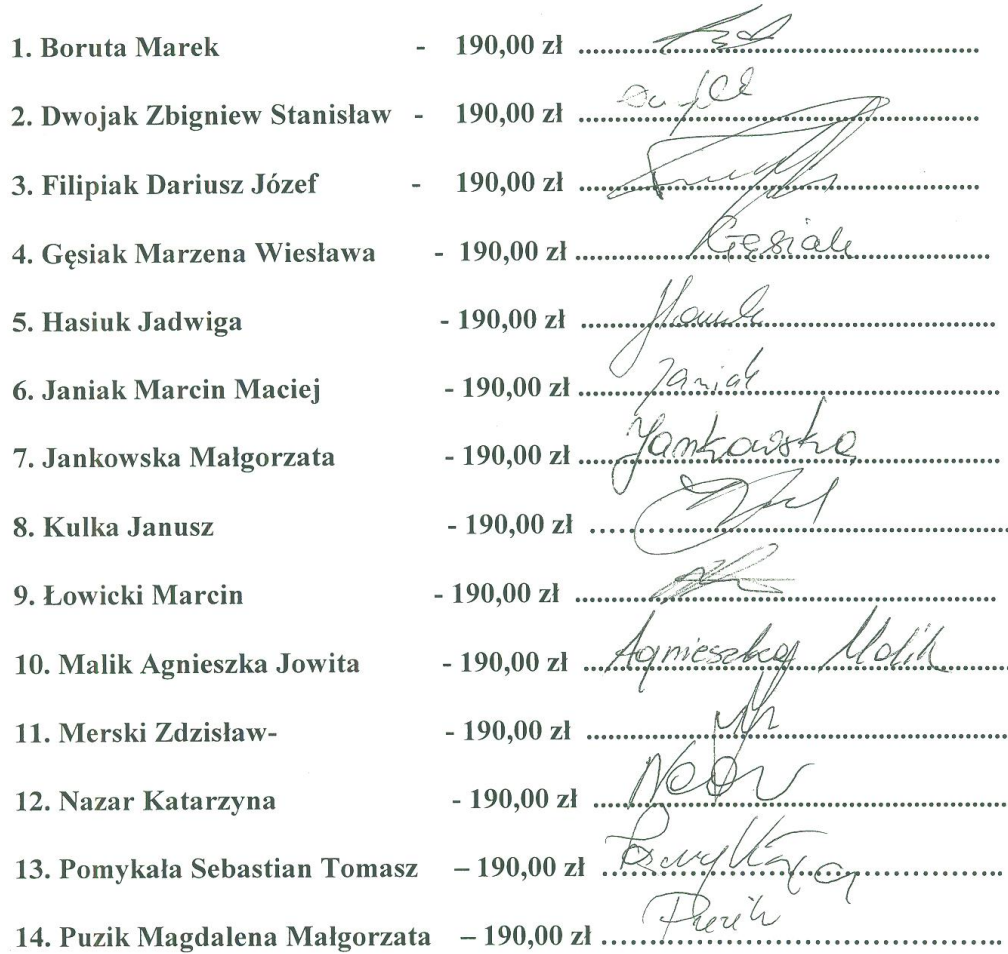 1. Boruta Marek - 190,00 zł ..................................................
2. Dwojak Zbigniew Stanisław - 190,00 zł ..................................................
3. Filipiak Dariusz Józef - 190,00 zł ..................................................
4. Gęsiak Marzena Wiesława - 190,00 zł .................................................. Gęsiak
5. Hasiuk Jadwiga - 190,00 zł ..................................................
6. Janiak Marcin Maciej - 190,00 zł .................................................. Janiak
7. Jankowska Małgorzata - 190,00 zł .................................................. Jankowska
8. Kulka Janusz - 190,00 zł ..................................................
9. Łowicki Marcin - 190,00 zł ..................................................
10. Malik Agnieszka Jowita - 190,00 zł .................................................. Agnieszka Malik
11. Merski Zdzisław- - 190,00 zł ..................................................
12. Nazar Katarzyna - 190,00 zł ..................................................
13. Pomykała Sebastian Tomasz – 190,00 zł ..................................................
14. Puzik Magdalena Małgorzata – 190,00 zł .................................................. Puzik